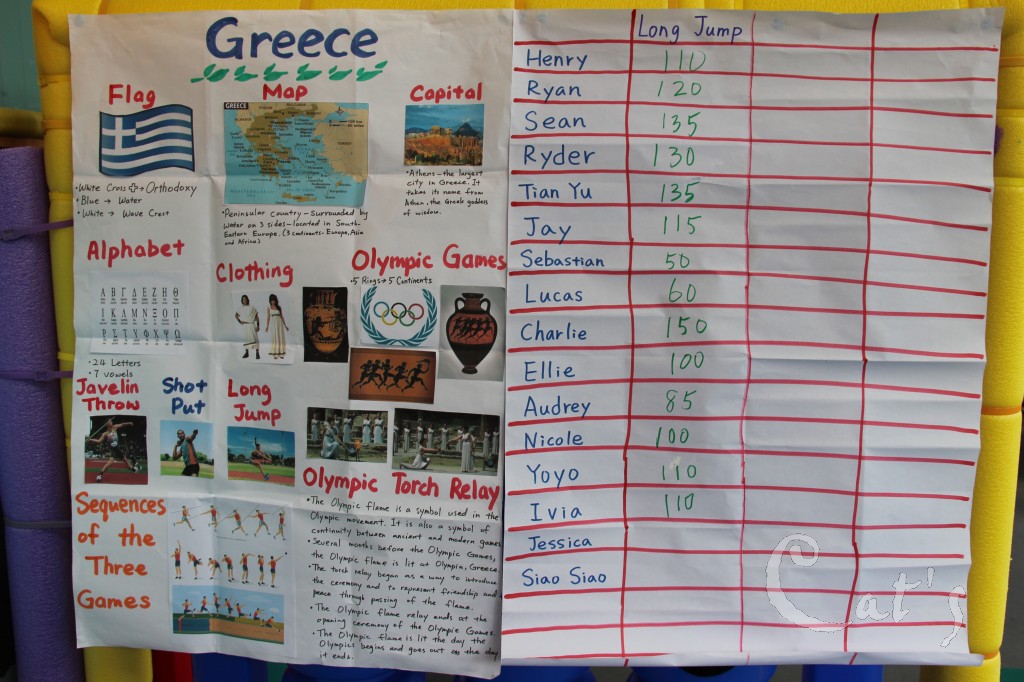 Greece
Flag
White Cross → Orthodoxy
Blue → Water
White → Wave Crest
Map
GREECE
Peninsular country - Surrounded by
Water on 3 sides - located in South-
Eastern Europe. (3 continents - Europe, Asia
and Africa)
Capital
Athens - the largest
city in Greece. It
takes its name from
Athen, the Greek goddess
of wisdom.
Alphabet
Α Β Γ Δ Ε Ζ Η Θ
Ι Κ Λ Μ Ν Ξ Ο Π
Ρ Σ Τ Υ Φ Χ Ψ Ω
24 Letters
7 vowels
Clothing
Olympic Games
5 Rings → 5 Continents
Javelin
Throw
Shot
Put
Long
Jump
Sequences
of the
Three
Games
Olympic Torch Relay
The Olympic flame is a symbol used in the
Olympic movement. It is also a symbol of
continuity between ancient and modern games
Several months before the Olympic Games,
the Olympic flame is lit at Olympia, Greece.
The torch relay began as a way to introduce
the ceremony and to represent friendship and
peace through passing of the flame.
The Olympic flame relay ends at the
opening ceremony of the Olympic Games.
The Olympic flame is lit the day the
Olympics begins and goes out on the day
it ends.
Long Jump
Henry 110
Ryan 120
Sean 135
Ryder 130
Tian Yu 135
Jay 115
Sebastian 50
Lucas 60
Charlie 150
Ellie 100
Audrey 85
Nicole 100
Yoyo 110
Ivia 110
Jessica
Siao Siao
Cat's